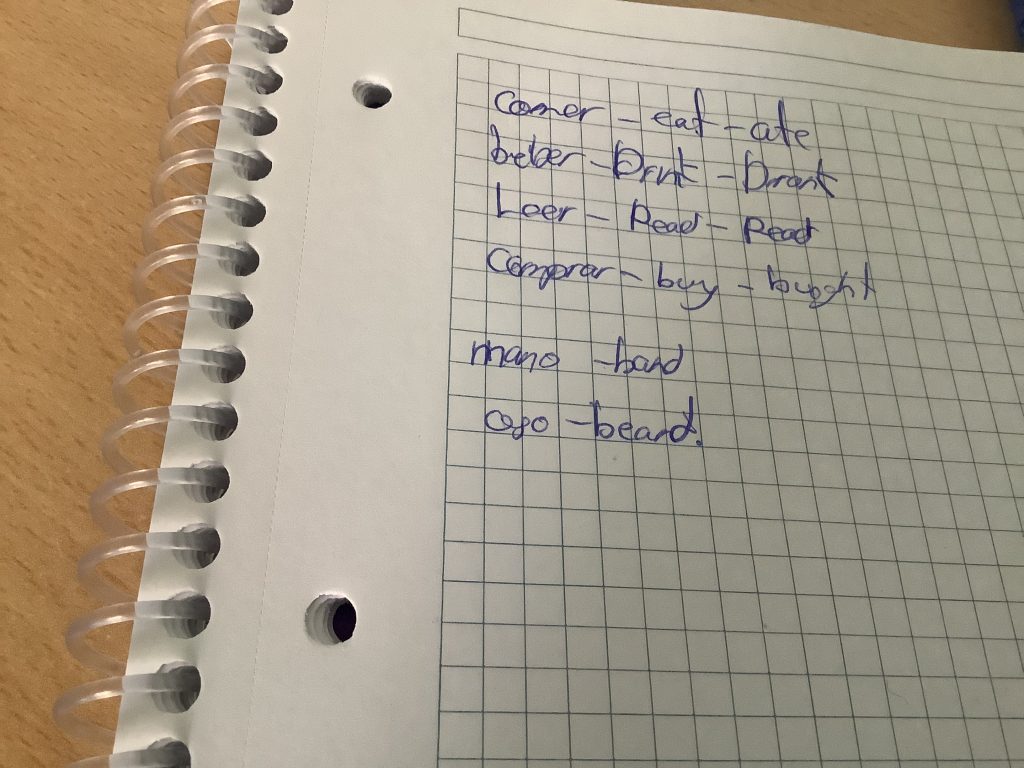 comer - eat - ate
beber - Drint - Drant
Leer - Read - Read
Comprar - buy - bught
mano - hand
ojo - beard.